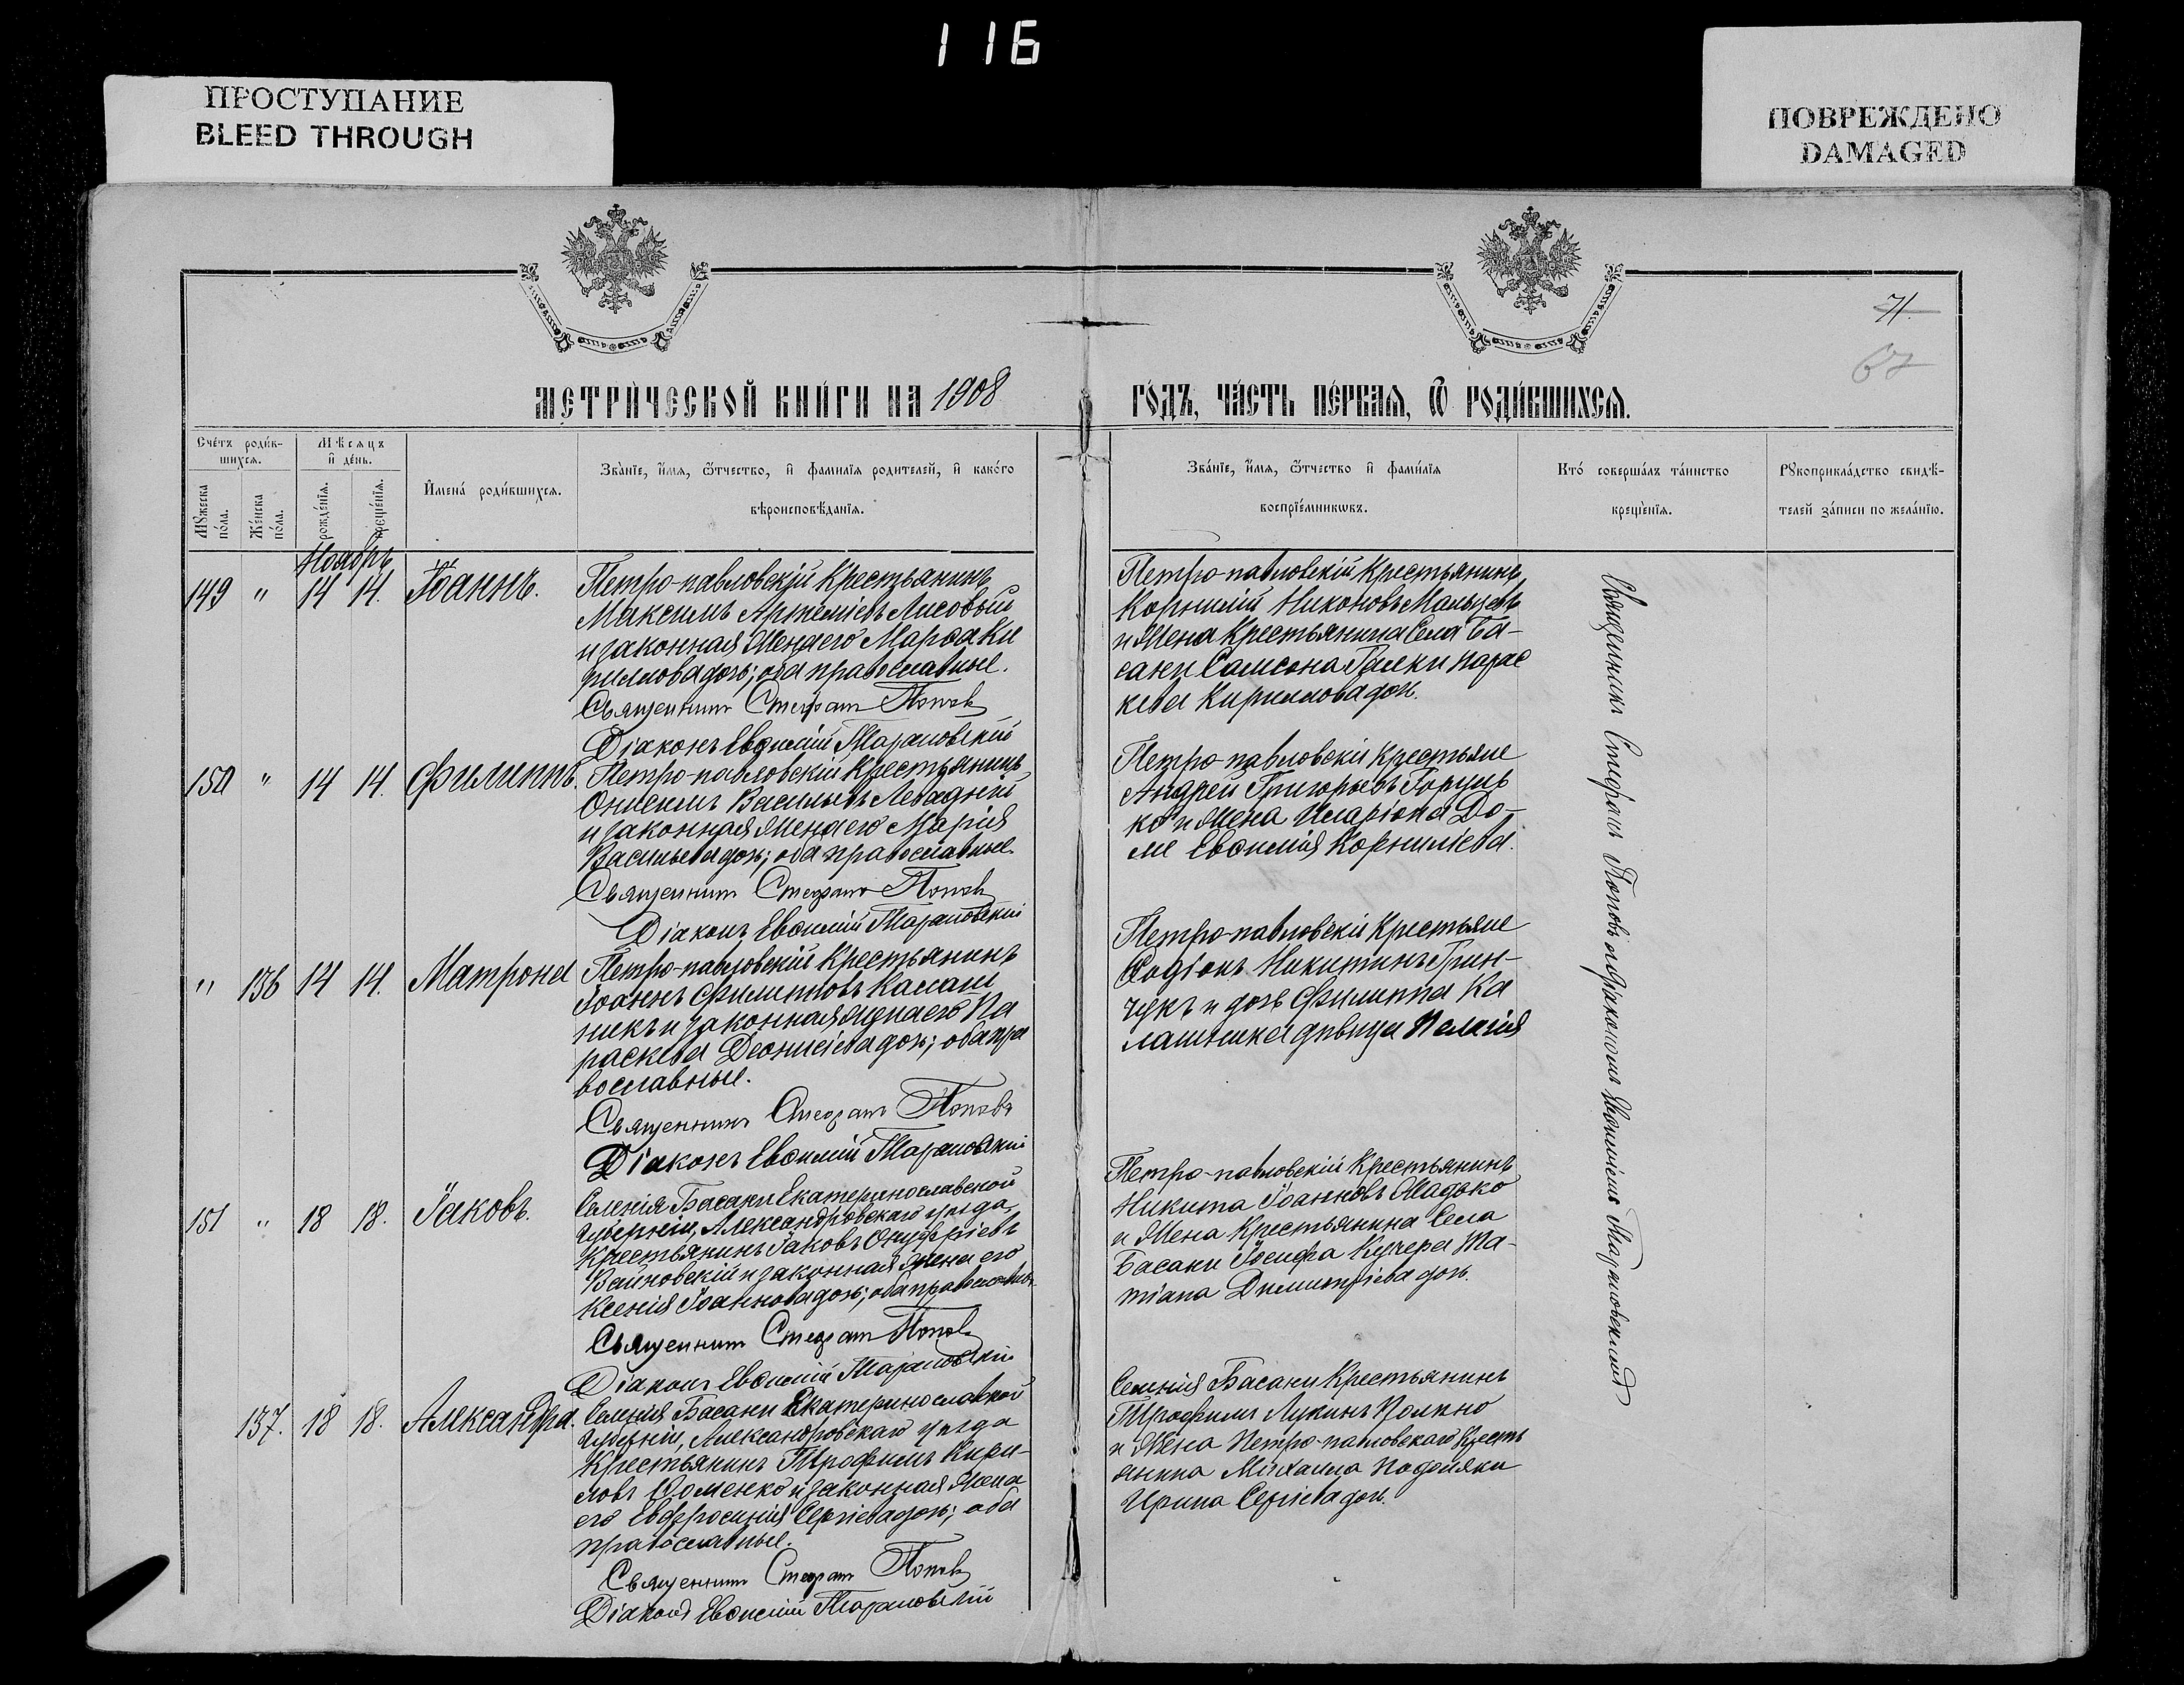 116
ПРОСТУПАНИЕ
BLEED THROUGH
ПОВРЕЖДЕНО
DAMAGED
71.
67
МЕТРИ́ЧЕСКОЙ КНИ́ГИ НА 1908
ГО́ДЪ, ЧА́СТЬ ПЕ́РВАЯ, Ѽ РОДИ́ВШИХСЯ.
Сче́тъ роди́в-
шихся.
Мѣсяцъ
и҆ де́нь.
Мꙋжеска
по́ла.
Же́нска
по́ла.
рожде́нїя.
креще́нїя.
И҆мена̀ роди́вшихся.
Зва́нїе, и҆́мя, ѻ҆́тчество, и҆ фамилїя родителей, и҆ како́го
вѣроисповѣ́данїя.
Зва́нїе, и҆́мя, ѻ҆́тчество и҆ фами́лїя
воспрїе́мникωвъ.
Кто́ соверша́лъ та́инство
креще́нїя.
Рꙋкоприкла́дство свидѣ́-
телей за́писи по жела́нїю.
Ноябрь
149 " 14 14. Іоаннъ.
Петро-павловскій Крестьянинъ
Максимъ Артеміевъ Лисовый
и законная Жена его Марѳа Ки
риллова дочь; оба православные.
Священникъ Стефанъ Поповъ
Діаконъ Евѳимій Тарановскій
Петро-павловскій Крестьянинъ
Корнилій Никоновъ Мальцевъ
и Жена Крестьянина Села Ба-
сани Самсона Галки Парас
кева Кириллова дочь.
150 " 14 14. Филиппъ.
Петро-павловскій Крестьянинъ
Онисимъ Васильевъ Левадній
и законная Жена его Марія
Васильева дочь; оба православные.
Священникъ Стефанъ Поповъ
Діаконъ Евѳимій Тарановскій
Петро-павловскіе Крестьяне
Андрей Григорьевъ Горуць
ко и Жена Иларіона До-
ли Евѳимія Корниліева.
" 136 14 14. Матрона
Петро-павловскій Крестьянинъ
Іоаннъ Филипповъ Калаш
никъ и законная жена его Па
раскева Деонисіева дочь; оба пра
вославные.
Священникъ Стефанъ Поповъ
Діаконъ Евѳимій Тарановскій
Петро-павловскіе Крестьяне
Родіонъ Никитинъ Грин-
чукъ и дочь Филиппа Ка
лашника дѣвица Пелагія
151 " 18 18. Іаковъ.
Селенія Басани Екатеринославской
губерніи, Александровскаго уѣзда,
Крестьянинъ Іаковъ Онуфріевъ
Войновскій и законная Жена его
Ксенія Іоаннова дочь; оба православн.
Священникъ Стефанъ Поповъ
Діаконъ Евѳимій Тарановскій
Петро-павловскій Крестьянинъ
Никита Іоанновъ
и Жена Крестьянина Села
Басани Іосифа Кучера Та-
тіана Димитріева дочь.
137. 18 18. Александра.
Селенія Басани Екатеринославской
губерніи, Александровскаго уѣзда
Крестьянинъ Трофимъ Кири-
ловъ Фоменко и законная Жена
его Евфросинія Сергіева дочь; оба
православные.
Священникъ Стефанъ Поповъ
Діаконъ Евѳимій Тарановскій
Селенія Басани Крестьянинъ
Трофимъ Лукинъ
и Жена Петро-павловскаго Кресть
янина Михаила Подоляки
Ирина Сергіева дочь.
Священникъ Стефанъ Поповъ съ діакономъ Евѳиміемъ Тарановскимъ